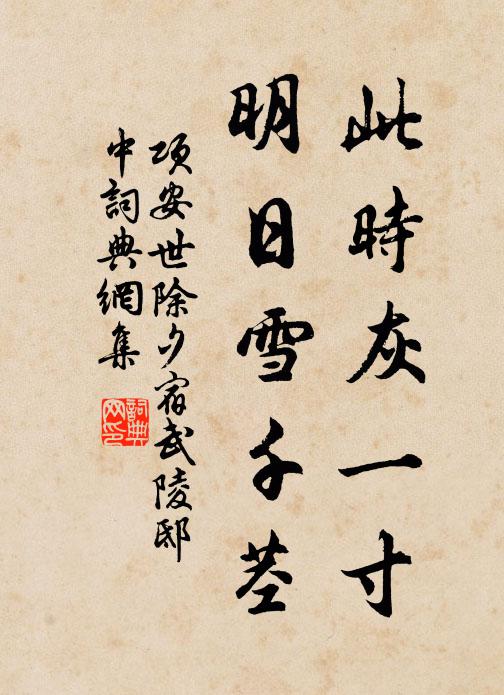 此時灰一寸
明日雪千莖
項安世除夕宿武陵邸
中詞典網集
詞典
网印